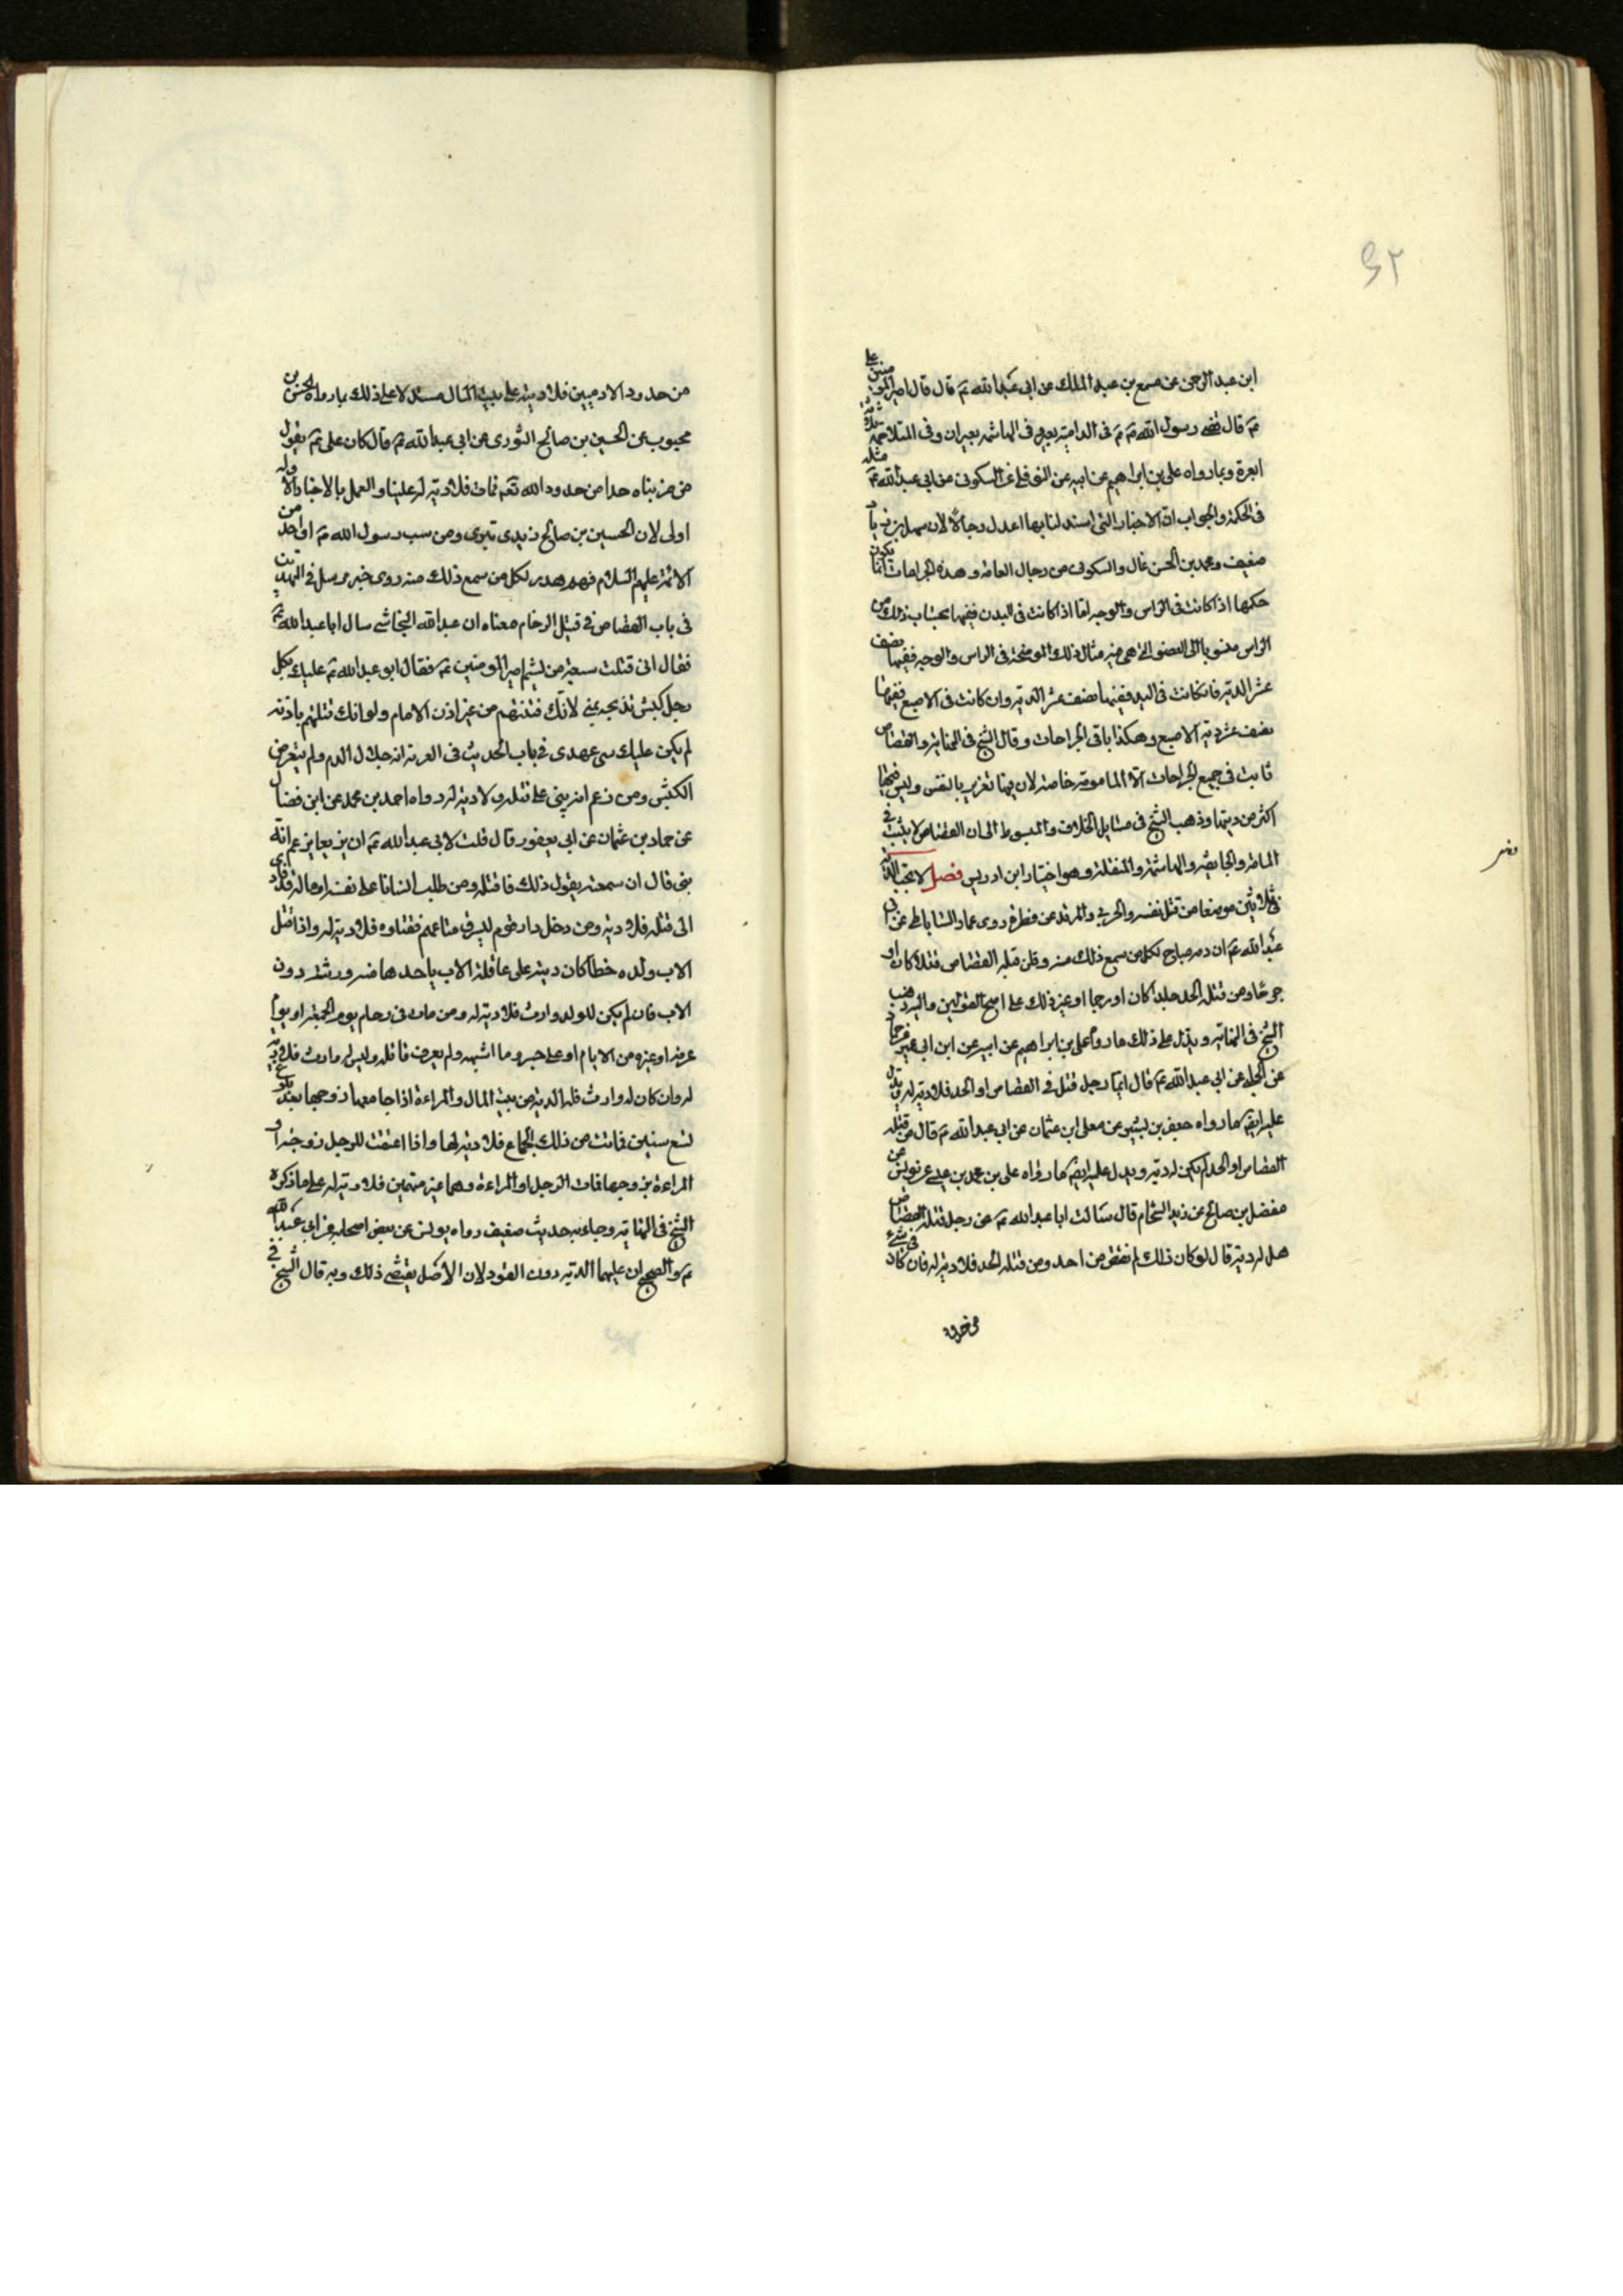 ٣٥
ابن عبد الرحمن عن مسمع بن عبد الملك عن ابي عبد الله ع قال قال امير المومنين علي
ع قال قضى رسول الله ص في الدامية بعير وفي الهاشمة بعيران وفي المتلاحمة ثلثة
ابعرة وبما رواه علي بن ابراهيم عن ابيه عن النوفلي عن السكوني عن ابي عبد الله ع مثله
في الحكمة والجواب ان الاخبار التي استدلنا بها اعدل رجالا لان سهل بن زياد
ضعيف ومحمد بن الحسن غال والسكوني من رجال العامة وهذه الجراحات انما يكون
حكمها اذا كانت في الراس والوجه اما اذا كانت في البدن ففيها بحساب ذلك من
الراس منسوبا الى العضو التي هي فيه مثال ذلك الموضحة في الراس والوجه ففيها نصف
عشر الدية فان كانت في اليد ففيها نصف عشر الدية وان كانت في الاصبع ففيها
نصف عشر دية الاصبع وهكذا باقي الجراحات وقال الشيخ في النهاية والقصاص
ثابت في جميع الجراحات الا المامومة خاصة لان فيها تغرير بالنفس وليس فيها
اكثر من ديتها وذهب الشيخ في مسايل الخلاف والمبسوط الى ان القصاص لا يثبت في
المامة والجايفة والهاشمة والمنقلة وهو اختيار ابن ادريس فصل لا تجب الدية
في ثلاثين موضعا من قتل نفسه والحربي والمرتد عن فطرة روى عمار الساباطي عن ابي
عبد الله ع ان دمه مباح لكل من سمع ذلك منه وقلن قتله القصاص قتلا كان او
جرحا ومن قتله الحد جلدا كان او رجما او غير ذلك على اصح القولين واليه ذهب
الشيخ في النهاية ويدل على ذلك ما رواه علي بن ابراهيم عن ابيه عن ابن ابي عمير عن حماد
عن الحلبي عن ابي عبد الله ع قال ايما رجل قتل في القصاص او الحد فلا دية له ويدل
عليه ايضا ما رواه جعفر بن بشير عن معلى ابن عثمان عن ابي عبد الله ع قال من قتله
القصاص او الحد لم يكن له دية ويدل عليه ايضا ما رواه علي بن محمد بن عيسى عن يونس عن
مفضل بن صالح عن زيد الشحام قال سالت ابا عبد الله ع عن رجل قتله القصاص
هل له دية قال لو كان ذلك لم نقتص من احد ومن قتله الحد فلا دية له فان كان في شيء
من حدود
من حدود الادميين فلا ديته على بيت المال مستدلا على ذلك بما رواه الحسن بن
محبوب عن الحسين بن صالح الثوري عن ابي عبد الله ع قال كان علي ع يقول
من ضربناه حدا من حدود الله تعم فمات فلا دية له علينا والعمل بالاخبار الاوله
اولى لان الحسين بن صالح زيدي تبري ومن سب رسول الله ص او احد من
الائمة عليهم السلام فهو هدر لكل من سمع ذلك منه روى خبر مرسل في التهذيب
في باب القصاص في قتيل الزحام معناه ان عبد الله النجاشي سال ابا عبد الله ع
فقال اني قتلت سبعة من يشتم امير المومنين ع فقال ابو عبد الله ع عليك بكل
رجل كبش تذبحه بمنى لانك قتلتهم من غير اذن الامام ولو انك قتلتهم باذنه
لم يكن عليك شي عهدي في باب الحديث في العرنة انه حلال الدم ولم يتعرض
الكبش ومن زعم انه نبي على قتله ولا دية له رواه احمد بن محمد عن ابن فضال
عن حماد بن عثمان عن ابي يعفور قال قلت لابي عبد الله ع ان بزيعا يزعم انه
نبي قال ان سمعته يقول ذلك فاقتله ومن طلب انسانا على نفسه او ماله فادى
الى قتله فلا دية ومن دخل دار قوم ليسرق متاعهم فقتلوه فلا دية له واذا قتل
الاب ولده خطأ كان ديته على عاقلة الاب ياخدها منه ورثته دون
الاب فان لم يكن للولد وارث فلا دية له ومن مات في زحام يوم الجمعة او يوم
عرفة او غيره من الايام او على جسر وما اشبهه ولم يعرف قاتله وليس له وارث فلا دية
له وان كان له وارث فله الدية من بيت المال والمراءة اذا جامعها زوجها بعد بلوغ
تسع سنين فماتت من ذلك الجماع فلا دية لها واذا اعنفت للرجل زوجته او
المراءة بزوجها فمات الرجل او المراءة وهما غير متهمين فلا دية له على ما ذكره
الشيخ في النهاية وجاء به حديث ضعيف رواه يونس عن بعض اصحابه عن ابي عبد الله
ع والصحيح ان عليهما الدية دون القود لان الاصل يقتضي ذلك وبه قال الشيخ في